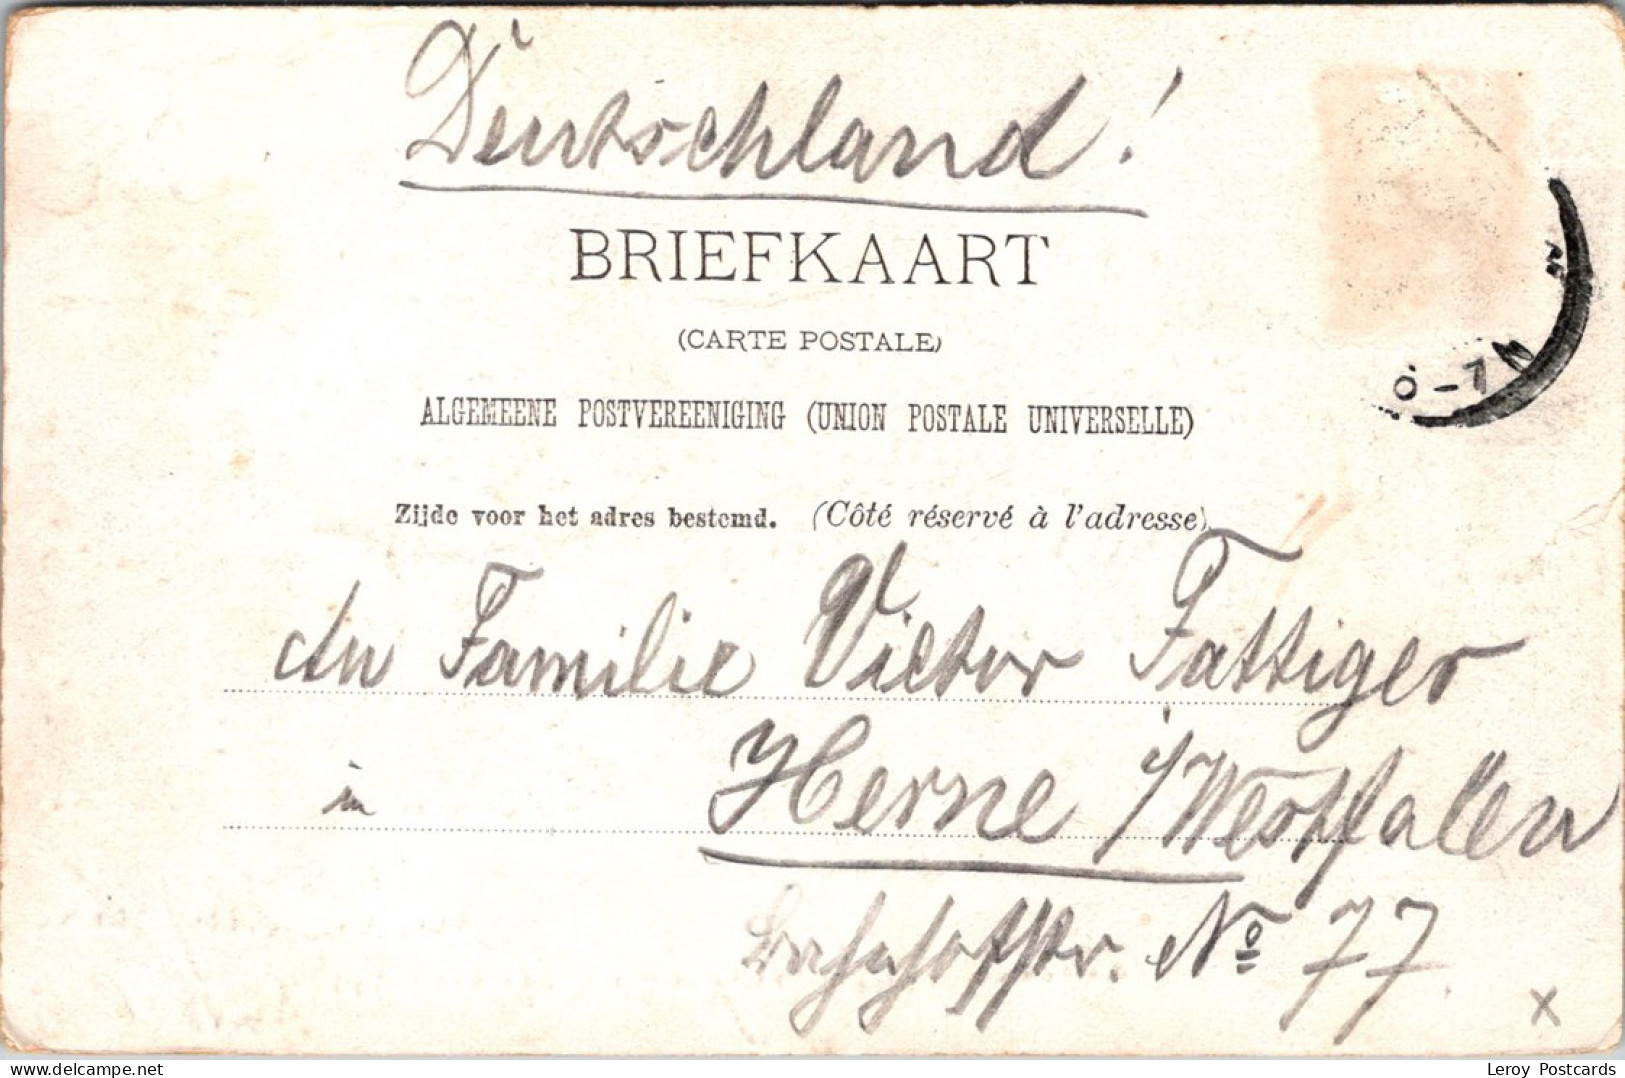 Deutschland!
BRIEFKAART
(CARTE POSTALE)
ALGEMEENE POSTVEREENIGING (UNION POSTALE UNIVERSELLE)
Zijde voor het adres bestemd. (Côté réservé à l'adresse)
An Familie Victor Fattiger
in Herne i/Westfalen
Bahnhofstr. No 77
X
www.delcampe.net
Leroy Postcards